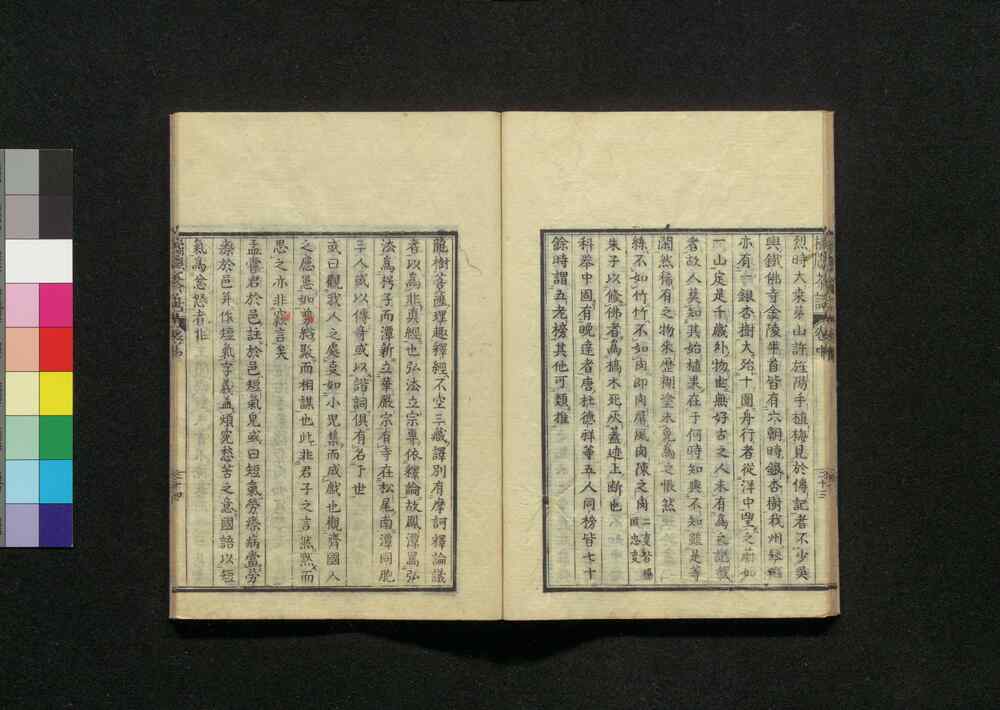 烈時大萊葉山許旌陽手植梅見於傳記者不少吳
興鐵佛寺金陵牛首皆有六朝時銀杏樹我州
亦有一銀杏樹大殆十圍舟行者從洋中望之蔚如
一山定是千歲外物也無好古之人未有為之記載
者故人莫知其始植果在于何時知與不知雖是等
閑然稀有之物朱歷糊塗未免為之悵然
絲不如竹竹不如肉即肉屏風肉陳之肉
朱子以修佛者為槁木死灰蓋迹上斷也
科舉中國有晚達者唐杜德祥等五人同榜皆七十
餘時謂五老榜其他可類推
龍樹菩薩理趣釋經不空三藏譯別有摩訶釋論議
者以為非真經也弘法立宗專依釋論故鳳潭罵弘
法為愕子而潭新立華嚴宗有寺在松尾南潭同胞
三人或以傳奇或以諧詞俱有名于世
或曰觀我人之處志如小兒集而成戲也觀齊國人
之應愚如鬼聚而相謀也此非君子之言然默而
思之亦非寃言矣
孟嘗君於邑註於邑短氣皃或曰短氣勞瘵病當勞
瘵於邑并作短氣字義並煩寃愁苦之意國語以短
氣為忿怒者非